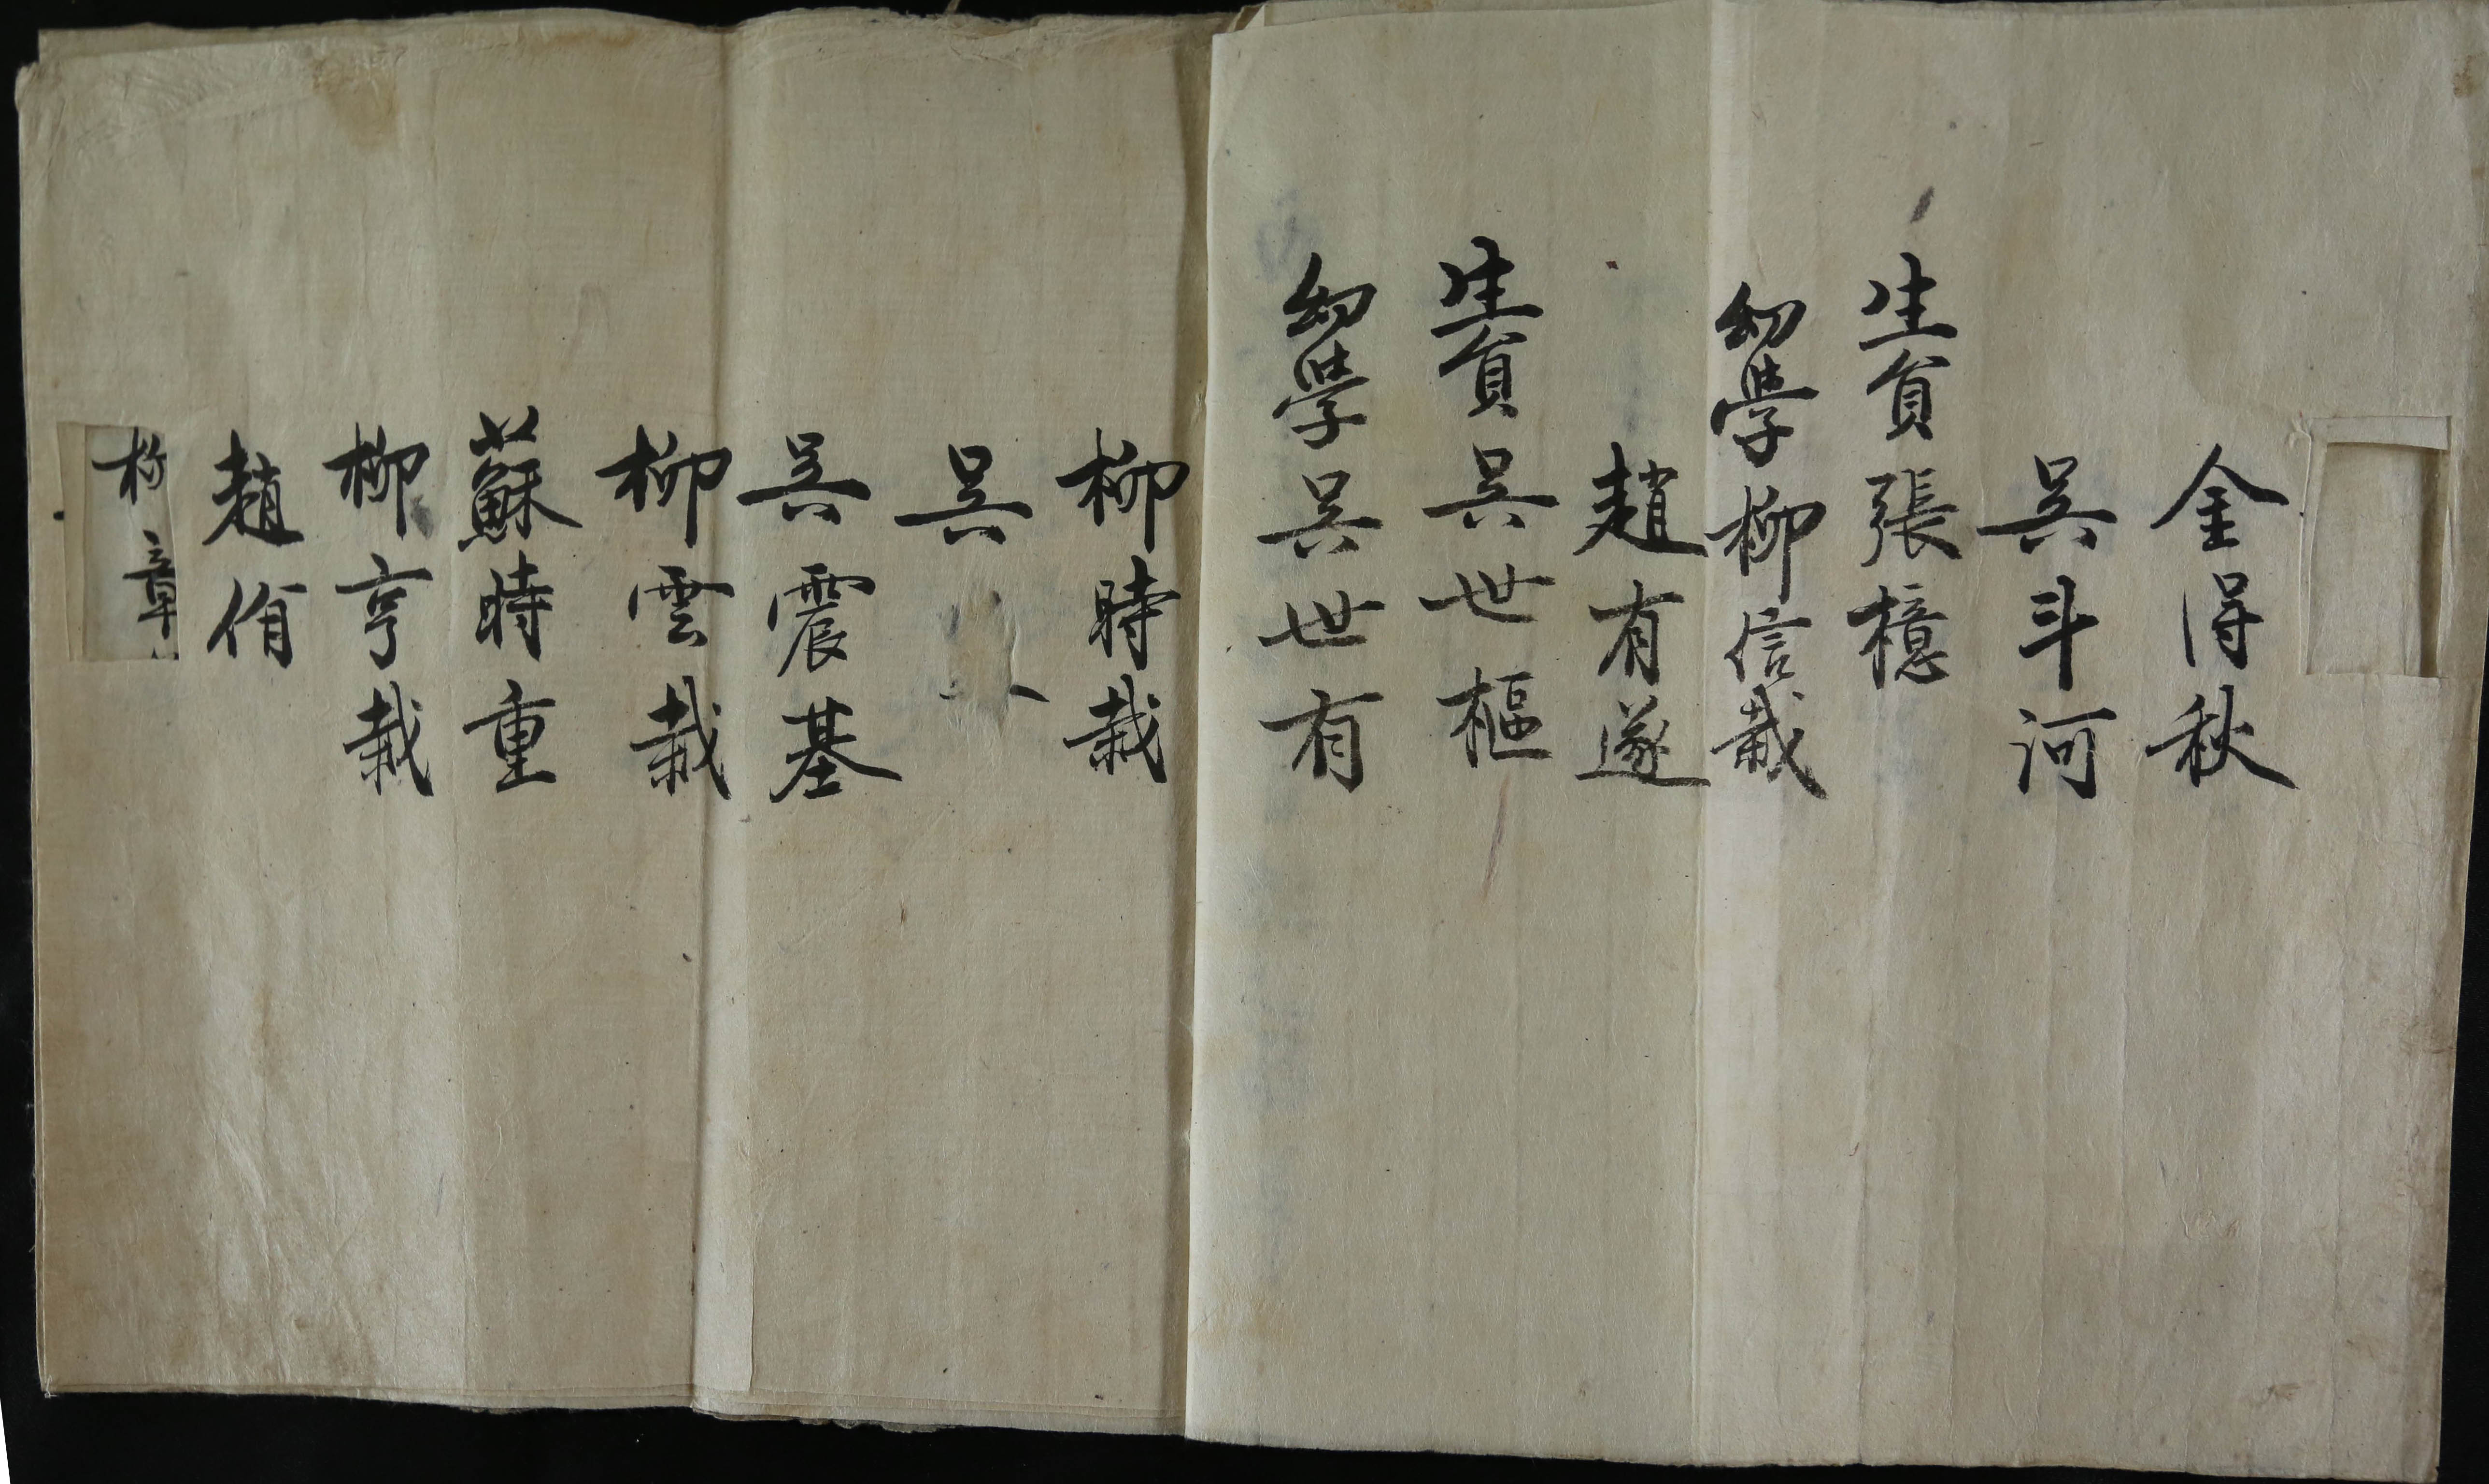 金得秋
吳斗河
生員張檍
幼學柳信栽
趙有遂
生員吳世樞
幼學吳世有
柳時栽
吳
吳震基
柳雲栽
蘇時重
柳亨栽
趙佾
章